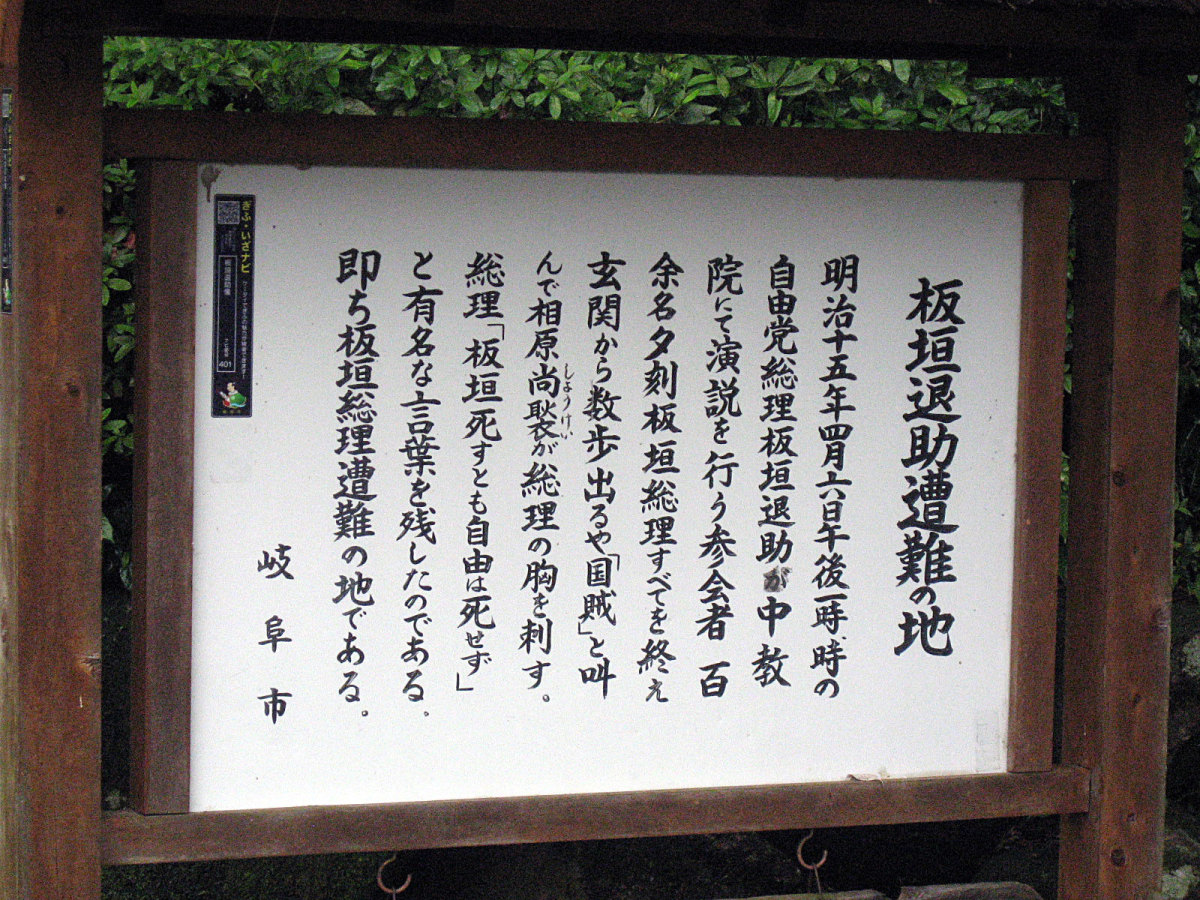 板垣退助遭難の地
明治十五年四月六日午後一時、時の
自由党総理板垣退助が中教
院にて演説を行う参会者 百
余名夕刻板垣総理すべてを終え
玄関から数歩出るや「国賊」と叫
んで相原尚褧が総理の胸を刺す。
しようけい
総理「板垣死すとも自由は死せず」
と有名な言葉を残したのである。
即ち板垣総理遭難の地である。
岐阜市
ぎふ・いざナビ
板垣退助像
401